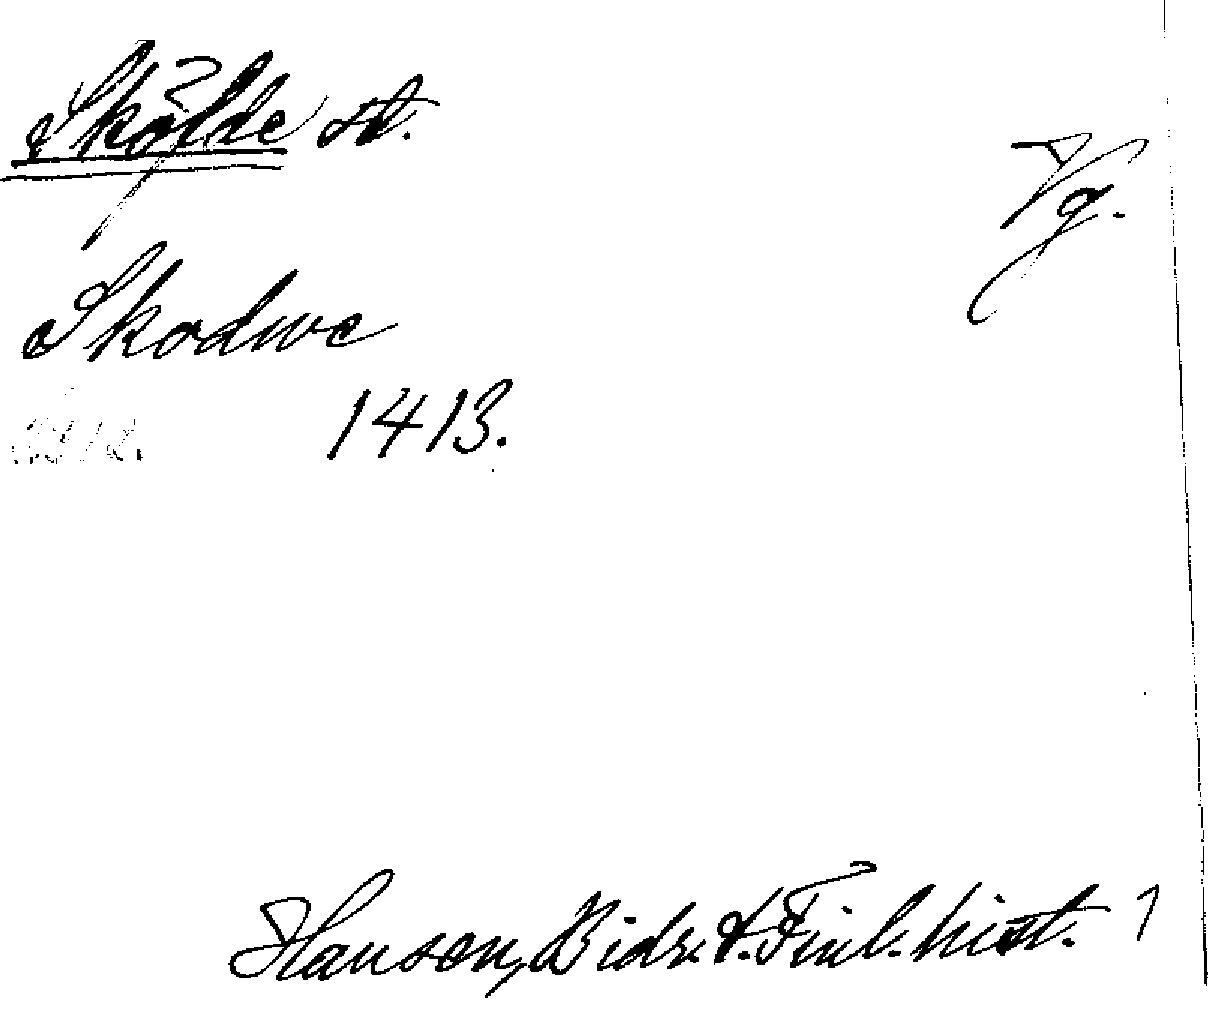 Skölde st.
Vg.
Skodwe
1413.
Hausen, Bidr. t. Finl. hist. 1